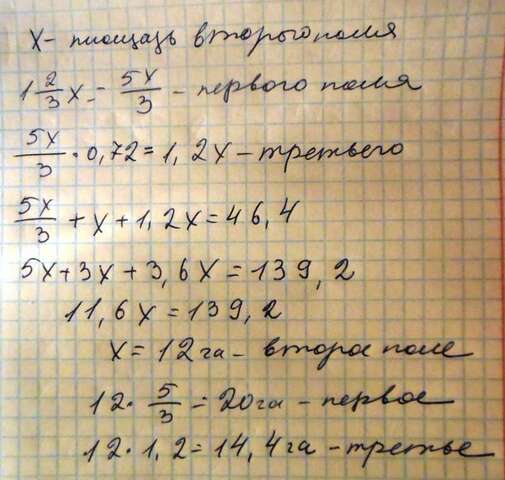 X - площадь второго поля
1 2/3 x = 5x/3 - первого поля
5x/3 · 0,72 = 1,2x - третьего
5x/3 + x + 1,2x = 46,4
5x + 3x + 3,6x = 139,2
11,6x = 139,2
x = 12 га - второе поле
12 · 5/3 = 20 га - первое
12 · 1,2 = 14,4 га - третье